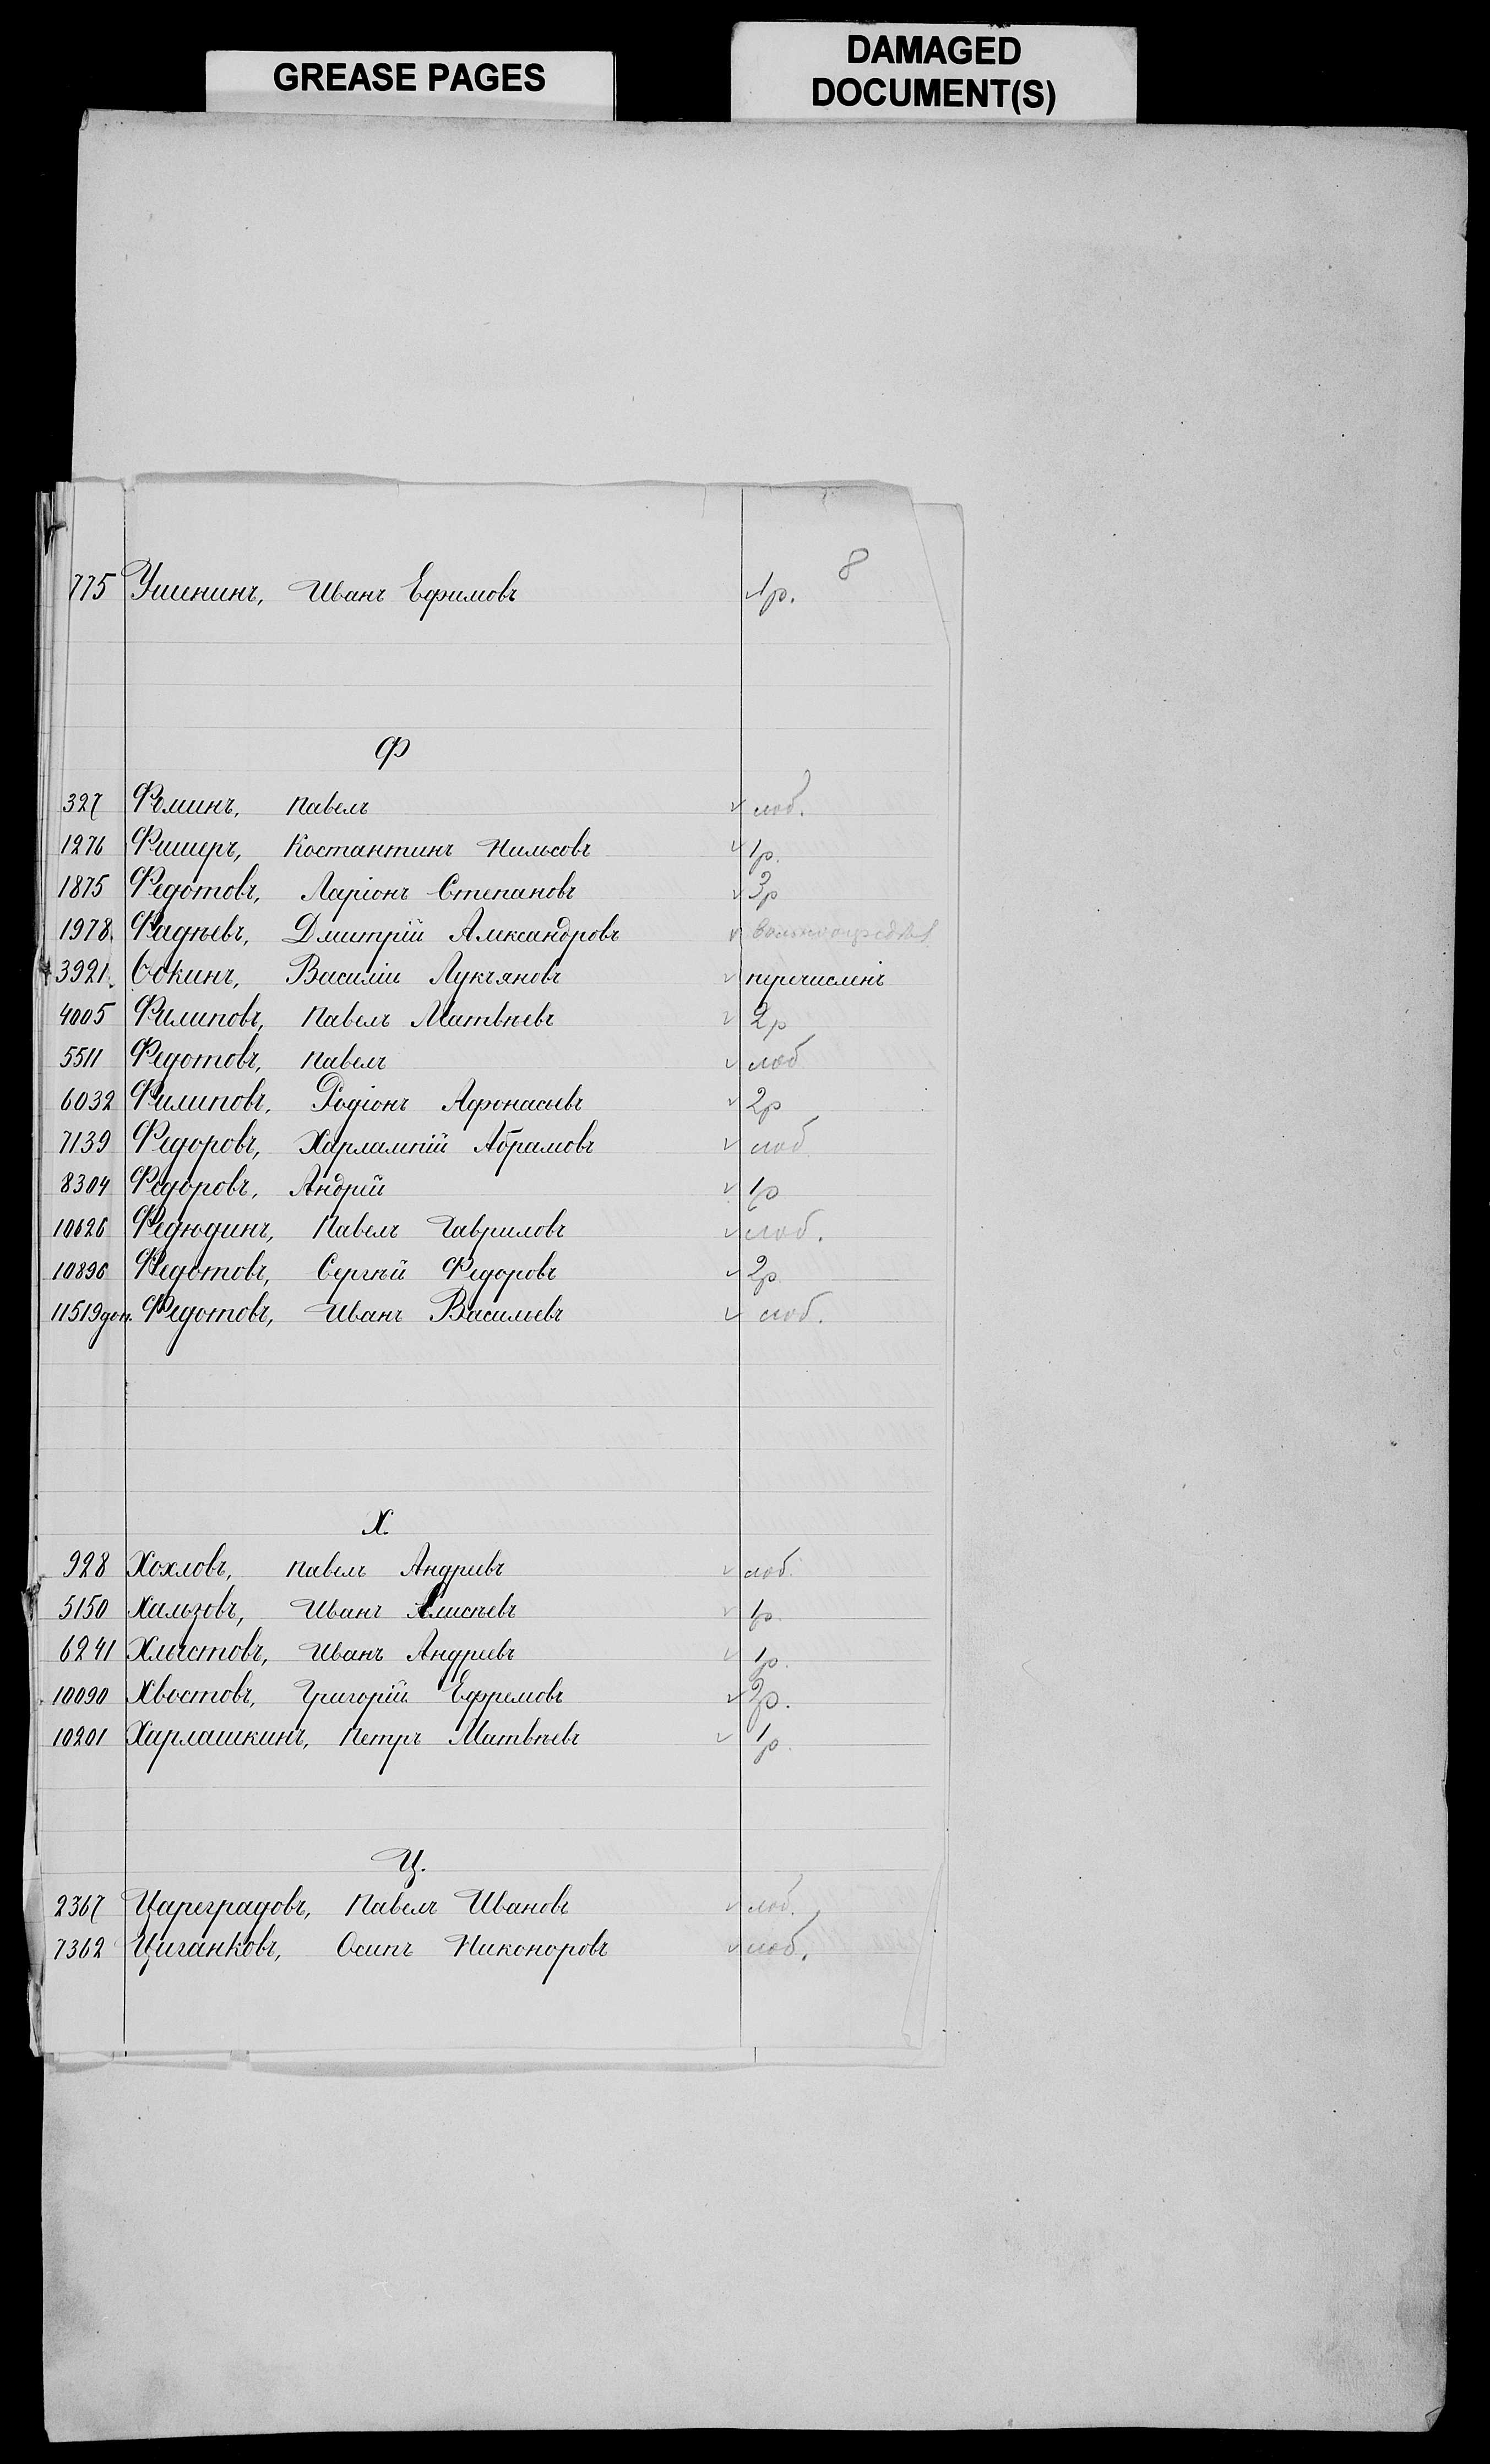 GREASE PAGES
DAMAGED
DOCUMENT(S)
8
775 Ушининъ, Иванъ Ефимовъ ✓ 1р.
Ф
327 Фоминъ, Павелъ ✓ лоб.
1276 Фишеръ, Костантинъ Нильсовъ ✓ 1р.
1875 Федотовъ, Ларіонъ Степановъ ✓ 3р
1978. Фадѣевъ, Дмитрій Александровъ ✓
3921. Ѳокинъ, Василій Лукъяновъ ✓ перечисленъ
4005 Филиповъ, Павелъ Матвѣевъ ✓ 2р
5511 Федотовъ, Павелъ ✓ лоб
6032 Филиповъ, Родіонъ Афонасьевъ ✓ 2р
7139 Федоровъ, Харлампій Абрамовъ ✓ лоб
8304 Федоровъ, Андрей ✓ 1р
10626 Федюдинъ, Павелъ Гавриловъ ✓ лоб.
10896 Федотовъ, Сергѣй Федоровъ ✓ 2р.
11519 доп. Федотовъ, Иванъ Васильевъ ✓ лоб.
Х.
928 Хохловъ, Павелъ Андреевъ ✓ лоб.
5150 Хальзовъ, Иванъ Елисѣевъ ✓ 1р.
6241 Хлыстовъ, Иванъ Андреевъ ✓ 1р.
10090 Хвостовъ, Григорій Ефремовъ ✓ 2р.
10201 Харлашкинъ, Петръ Матвѣевъ ✓ 1р.
Ц.
2367 Цареградовъ, Павелъ Ивановъ ✓ лоб.
7362 Циганковъ, Осипъ Никоноровъ ✓ лоб.